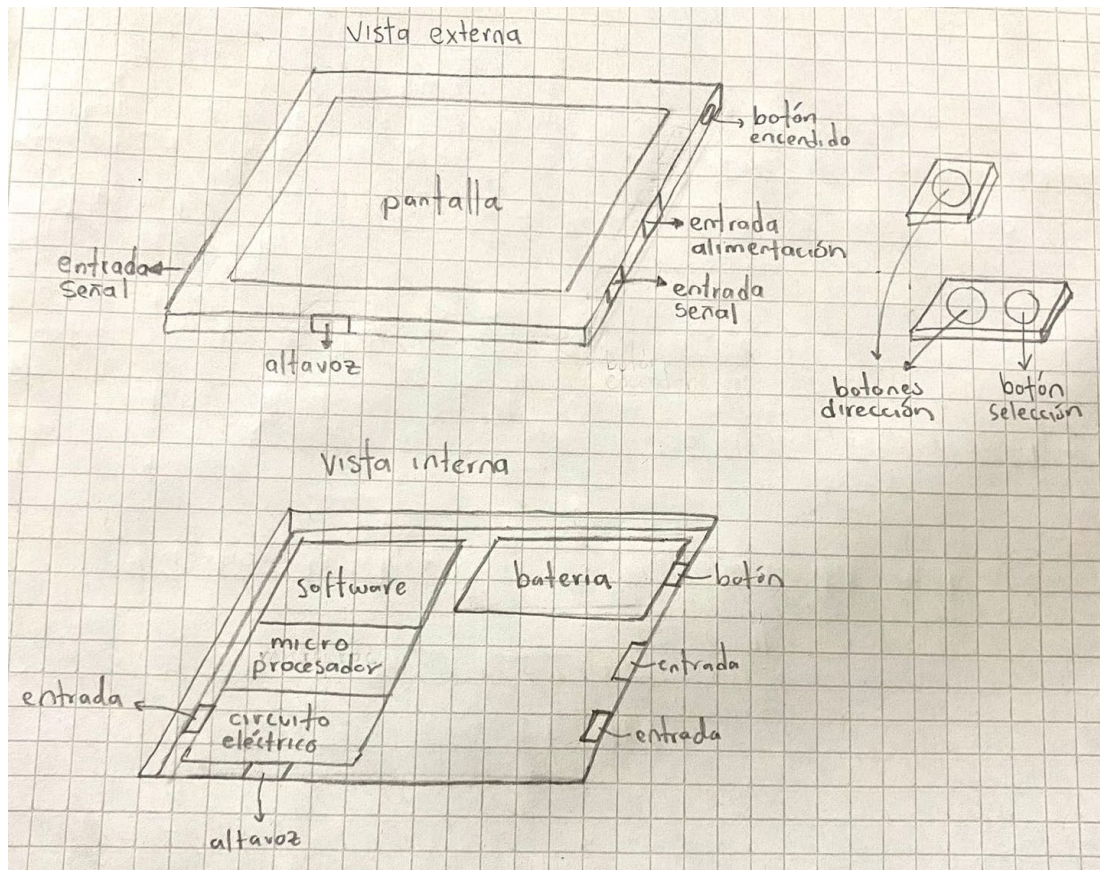 Vista externa
botón
encendido
pantalla
entrada
alimentación
entrada
señal
entrada
señal
altavoz
botones
dirección
botón
selección
Vista interna
software
bateria
botón
micro
procesador
entrada
entrada
circuito
eléctrico
entrada
altavoz